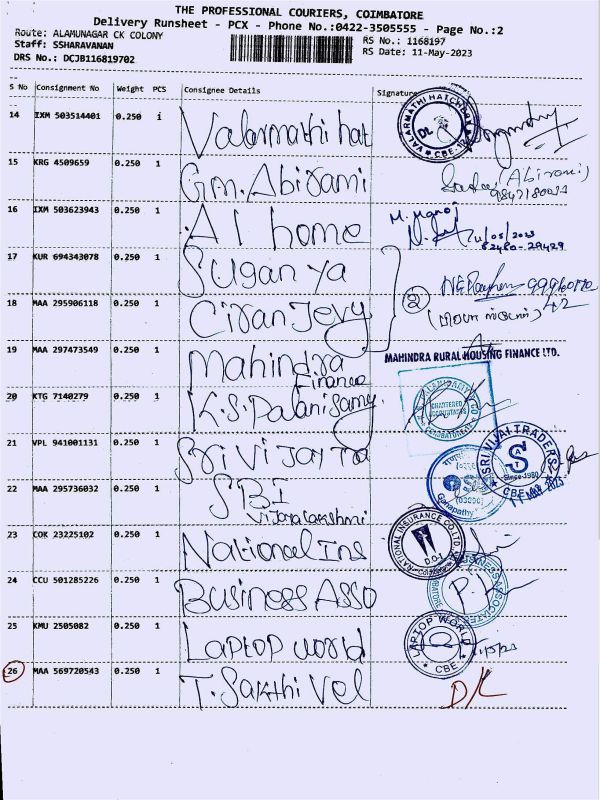 THE PROFESSIONAL COURIERS, COIMBATORE
Delivery Runsheet - PCX - Phone No.:0422-3505555 - Page No.:2
Route: ALAMUNAGAR CK COLONY
RS No.: 1168197
Staff: SSHARAVANAN
RS Date: 11-May-2023
DRS No.: DCJB116819702
S No Consignment No Weight PCS Consignee Details Signature
14 IXM 503514401 0.250 1 Valarmathi hat
VALARMATHI HATCHERY
CBE
15 KRG 4509659 0.250 1 G.m. Abirami
(Abirami)
16 IXM 503623943 0.250 1 A1 home
M. Manoj
82480-29429
17 KUR 694343078 0.250 1 Suganya
2
18 MAA 295906118 0.250 1 Ciran Jevy
19 MAA 297473549 0.250 1 Mahindra
Finance
MAHINDRA RURAL HOUSING FINANCE LTD.
20 KTG 7140279 0.250 1 K.S. Palanisamy
CHARTERED
ACCOUNTANTS
21 VPL 941001131 0.250 1 Sri Vijai Tra
SRI VIJAI TRADERS
Since-1980
CBE
22 MAA 295736032 0.250 1 SBI
Vijayalakshmi
Ganapathy
11 MAY 2023
23 COK 23225102 0.250 1 National Ins
NATIONAL INSURANCE CO.LTD.
24 CCU 501285226 0.250 1 Business Asso
BUSINESS ASSOCIATES
25 KMU 2505082 0.250 1 Laptop world
LAPTOP WORLD
CBE
26 MAA 569720543 0.250 1 T. Sakthi Vel